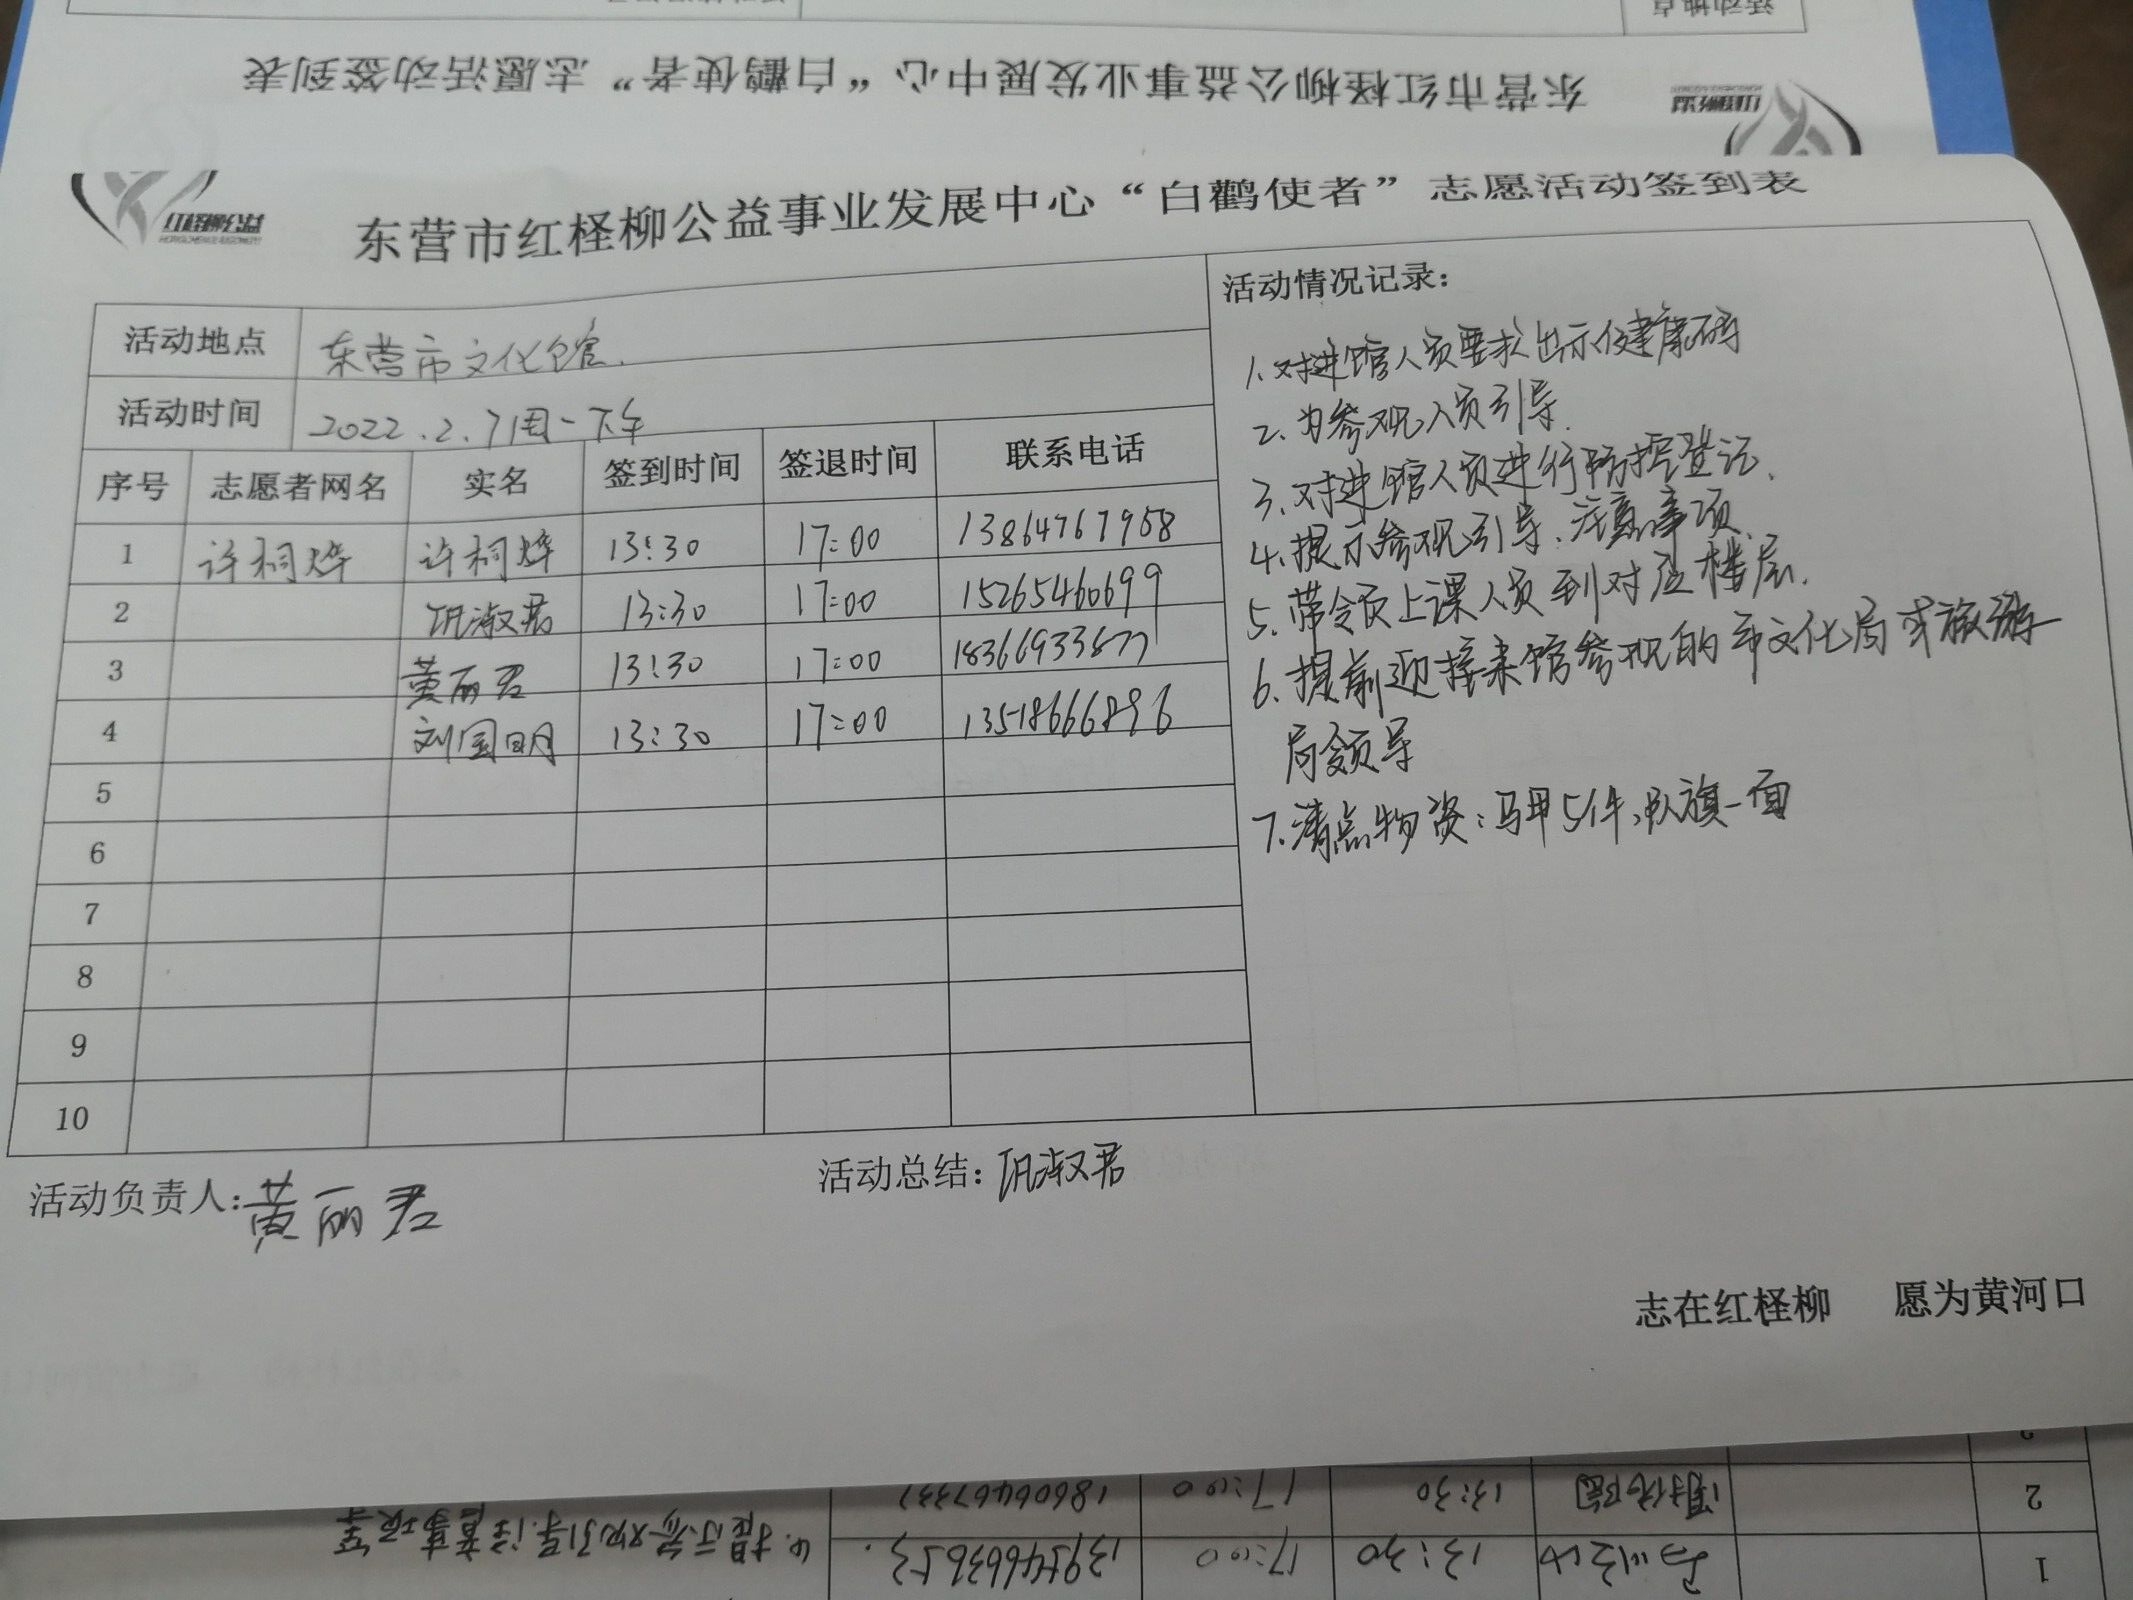 活动地点
东营市红柽柳公益事业发展中心“白鹳使者”志愿活动签到表
红柽柳公益
红柽柳公益
东营市红柽柳公益事业发展中心“白鹳使者”志愿活动签到表
活动地点 东营市文化馆.
活动时间 2022.2.7周一下午
序号 志愿者网名 实名 签到时间 签退时间 联系电话
1 许桐烨 许桐烨 13:30 17:00 13864767958
2 巩淑君 13:30 17:00 15265460699
3 黄丽君 13:30 17:00 18366933877
4 刘国明 13:30 17:00 13518666896
5
6
7
8
9
10
活动情况记录:
1.对进馆人员要求出示健康码
2.为参观人员引导.
3.对进馆人员进行防控登记.
4.提示参观引导.注意事项.
5.带领上课人员到对应楼层.
6.提前迎接来馆参观的市文化局或旅游
局领导
7.清点物资:马甲5件,队旗一面
活动负责人:黄丽君
活动总结:巩淑君
志在红柽柳 愿为黄河口
2 13:30 17:00 18606467337
4.提示参观引导.注意事项等
1 13:30 17:00 13954663653.